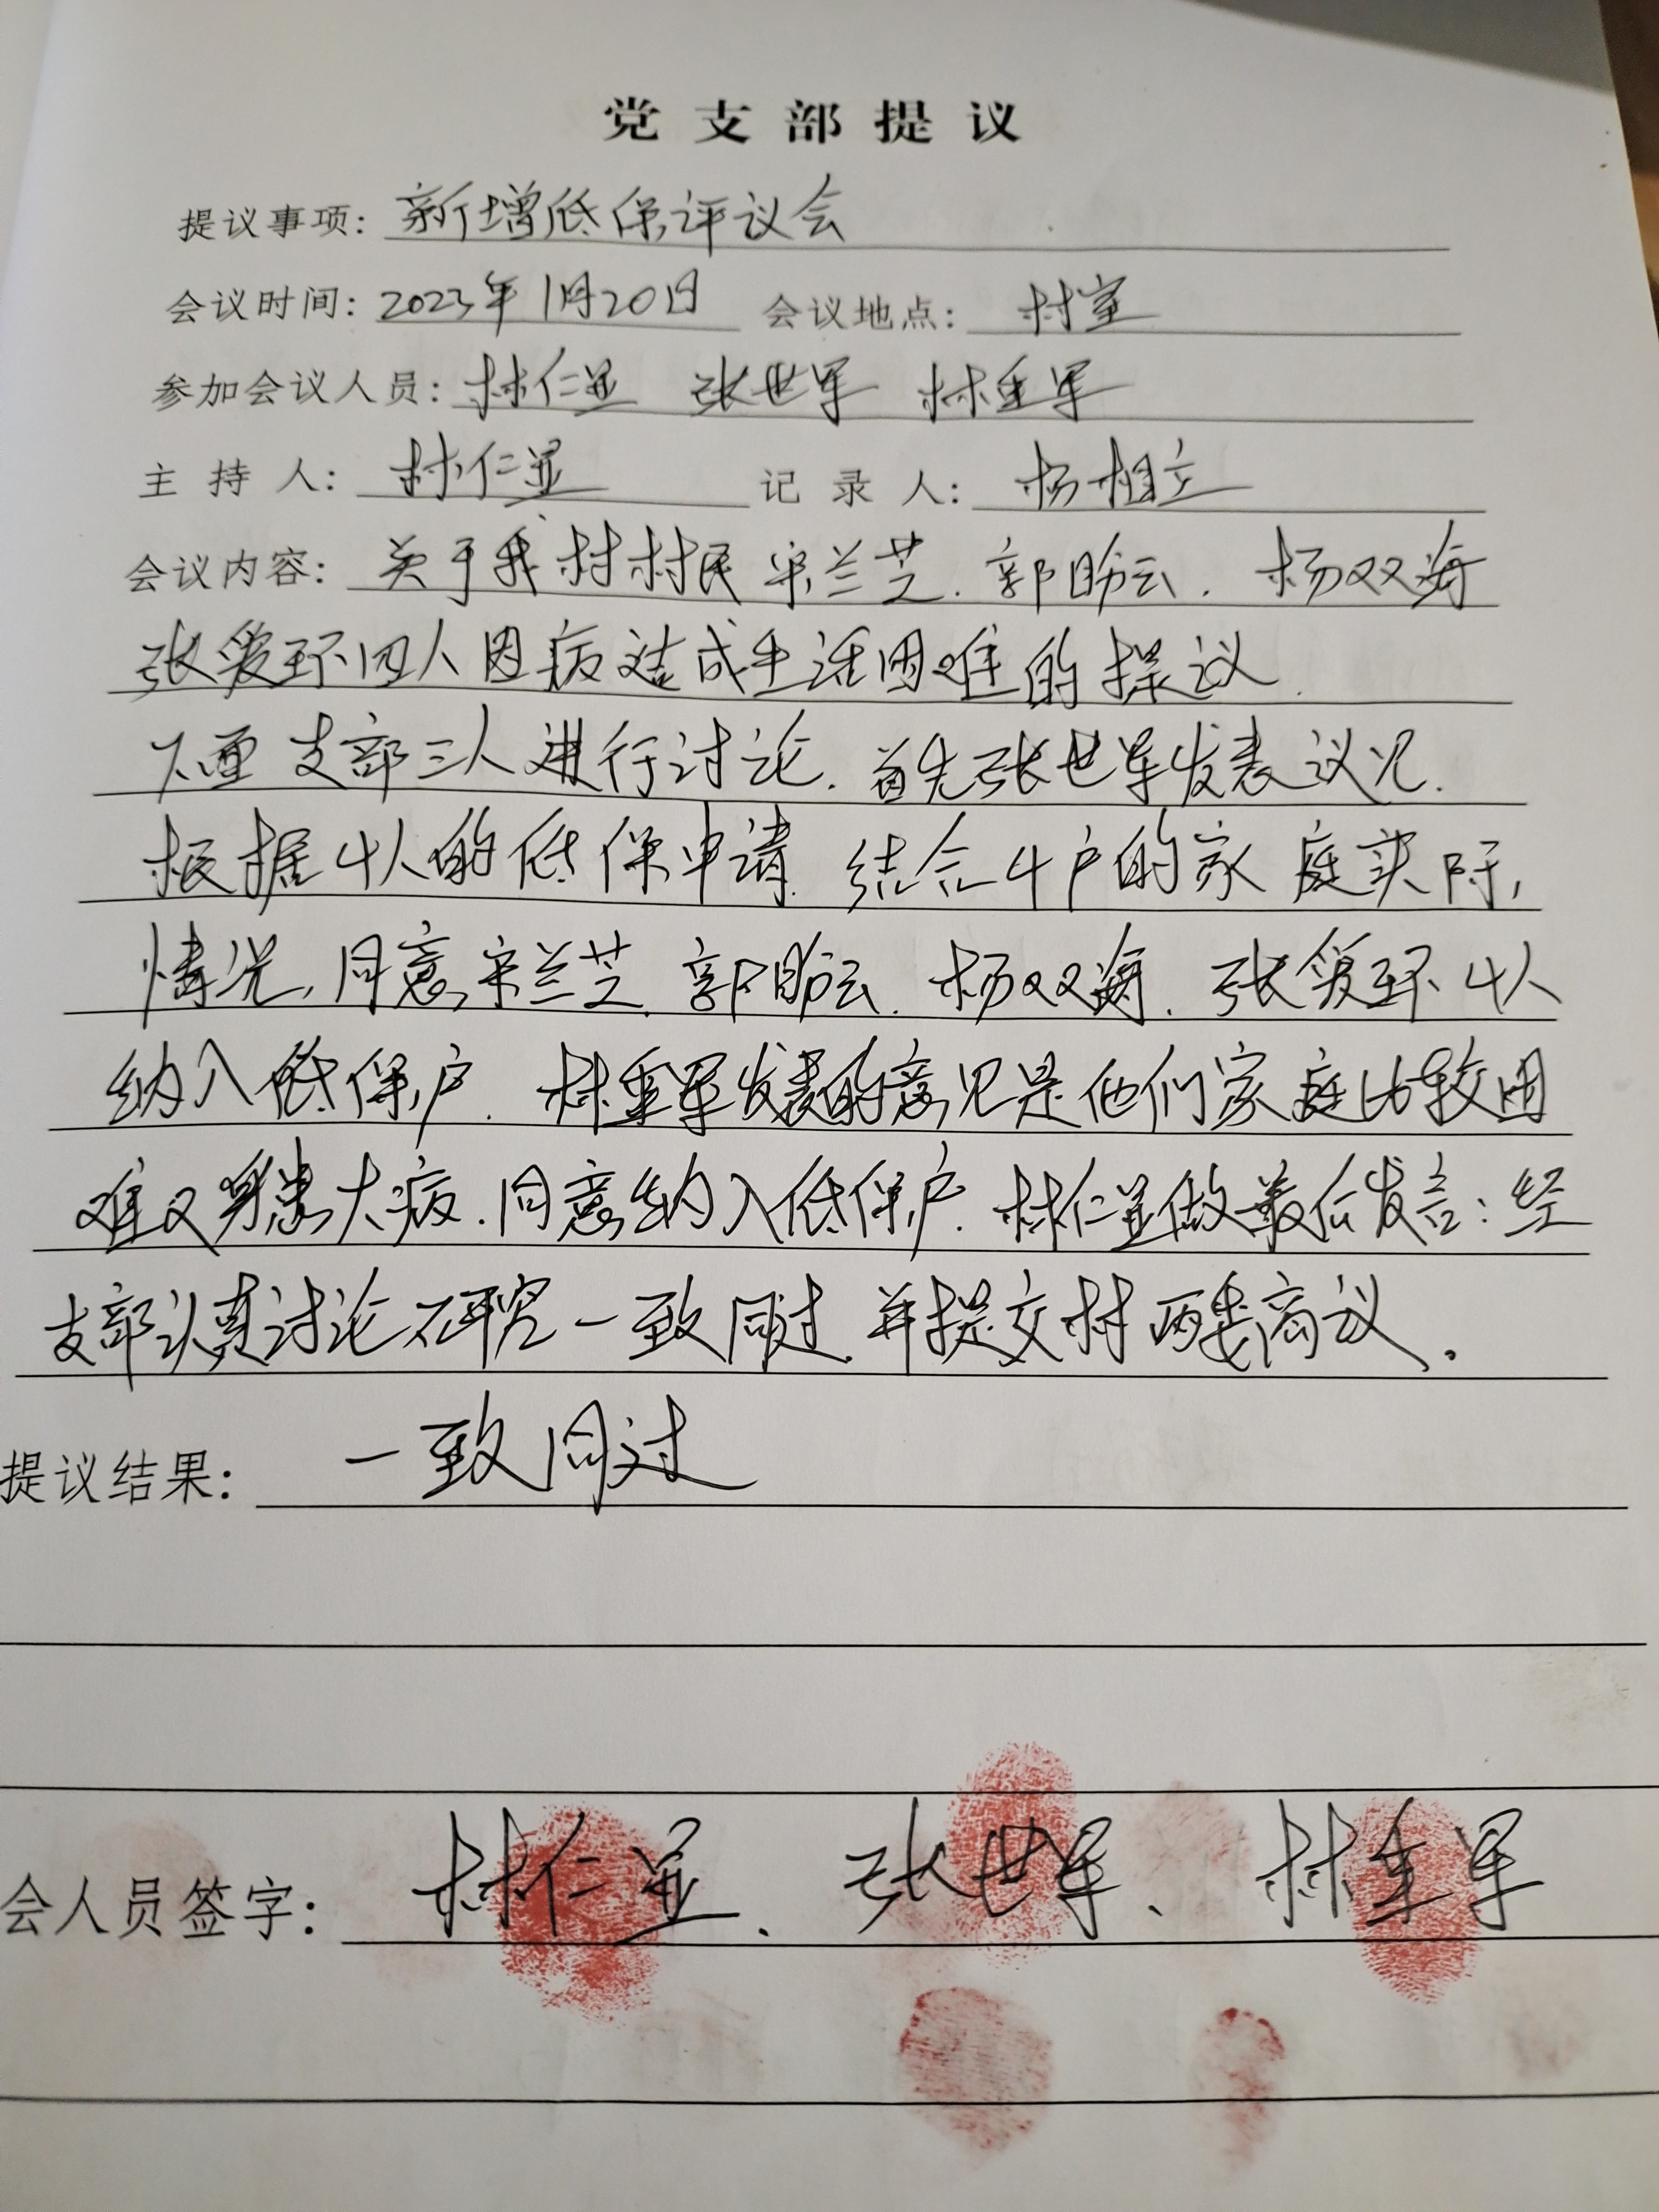 党支部提议
提议事项: 新增低保评议会
会议时间: 2023年1月20日 会议地点: 村室
参加会议人员: 林仁显 张世军 林重军
主持人: 林仁显 记录人: 杨相立
会议内容: 关于我村村民宋兰芝. 郭盼云. 杨双海
张爱环四人因病造成生活困难的提议.
下面支部三人进行讨论. 首先张世军发表议见.
根据4人的低保申请. 结合4户的家庭实际,
情况, 同意宋兰芝. 郭盼云. 杨双海. 张爱环4人
纳入低保户. 林重军发表的意见是他们家庭比较困
难又身患大病. 同意纳入低保户. 林仁显做最后发言: 经
支部认真讨论研究一致同过. 并提交村两委商议.
提议结果: 一致同过
会人员签字: 林仁显、张世军、林重军